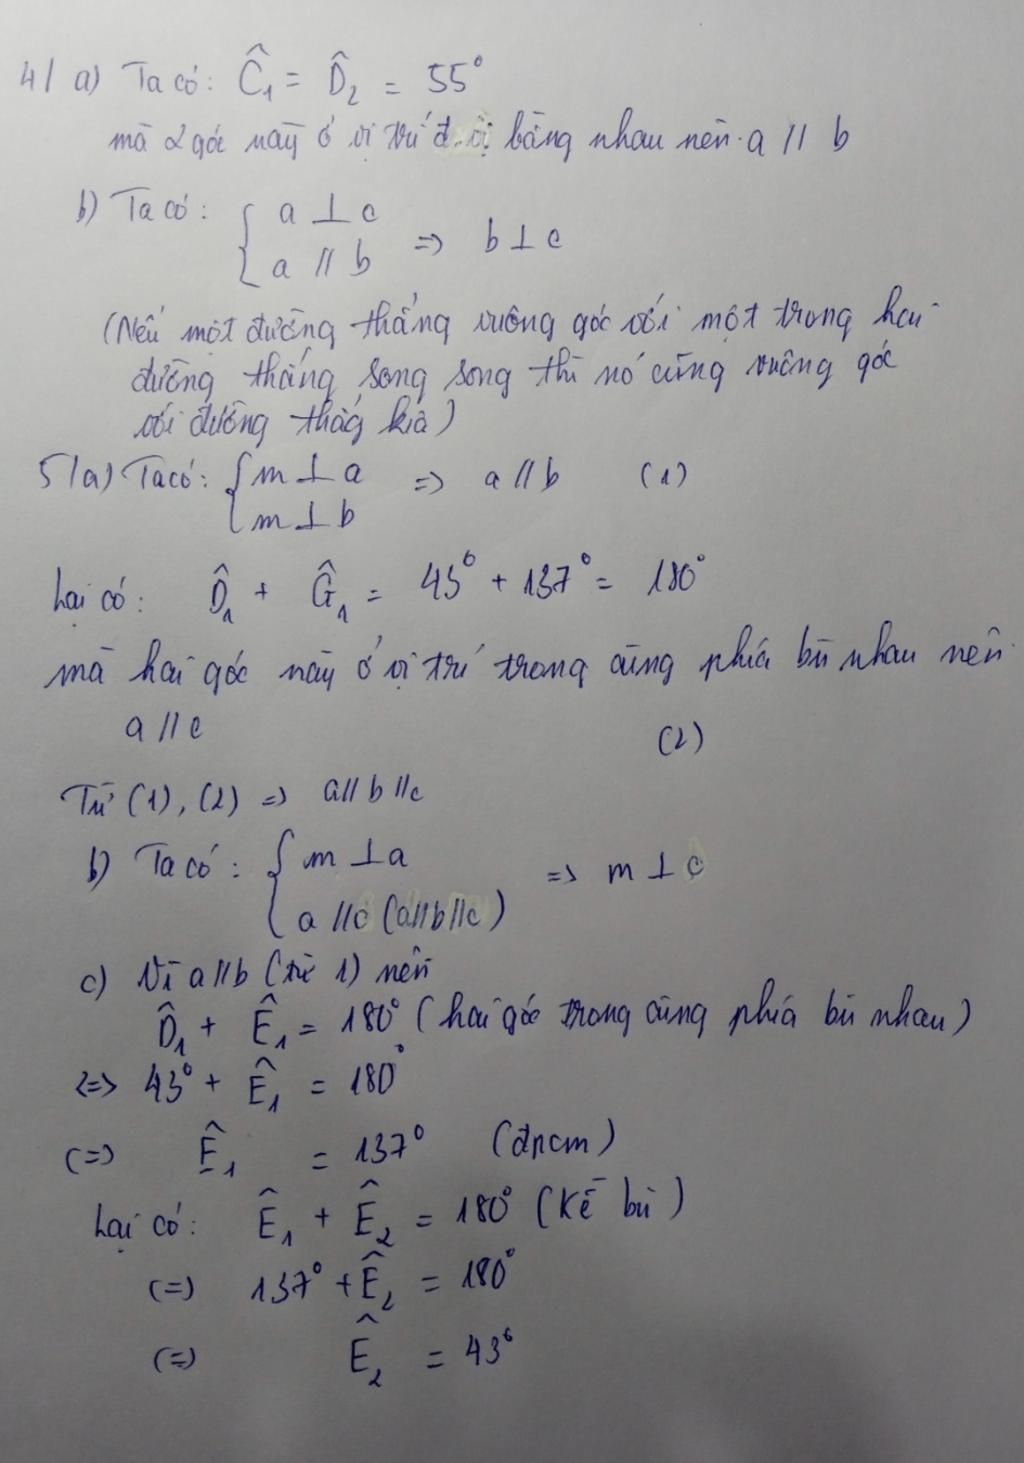 4/ a) Ta có: Ĉ₁ = D̂₂ = 55°
mà 2 góc này ở vị trí bằng nhau nên a // b
b) Ta có: { a ⊥ c
a // b => b ⊥ c
(Nếu một đường thẳng vuông góc với một trong hai
đường thẳng song song thì nó cũng vuông góc
với đường thẳg kia)
5/a) Ta có: { m ⊥ a => a // b (1)
m ⊥ b
Lại có: D̂₁ + Ĝ₁ = 43° + 137° = 180°
mà hai góc này ở vị trí trong cùng phía bù nhau nên
a // c (2)
Từ (1), (2) => a // b // c
b) Ta có: { m ⊥ a => m ⊥ c
a // c (a // b // c)
c) Vì a // b (từ 1) nên
D̂₁ + Ê₁ = 180° (hai góc trong cùng phía bù nhau)
<=> 43° + Ê₁ = 180°
(=) Ê₁ = 137° (đpcm)
Lại có: Ê₁ + Ê₂ = 180° (Kề bù)
(=) 137° + Ê₂ = 180°
(=) Ê₂ = 43°